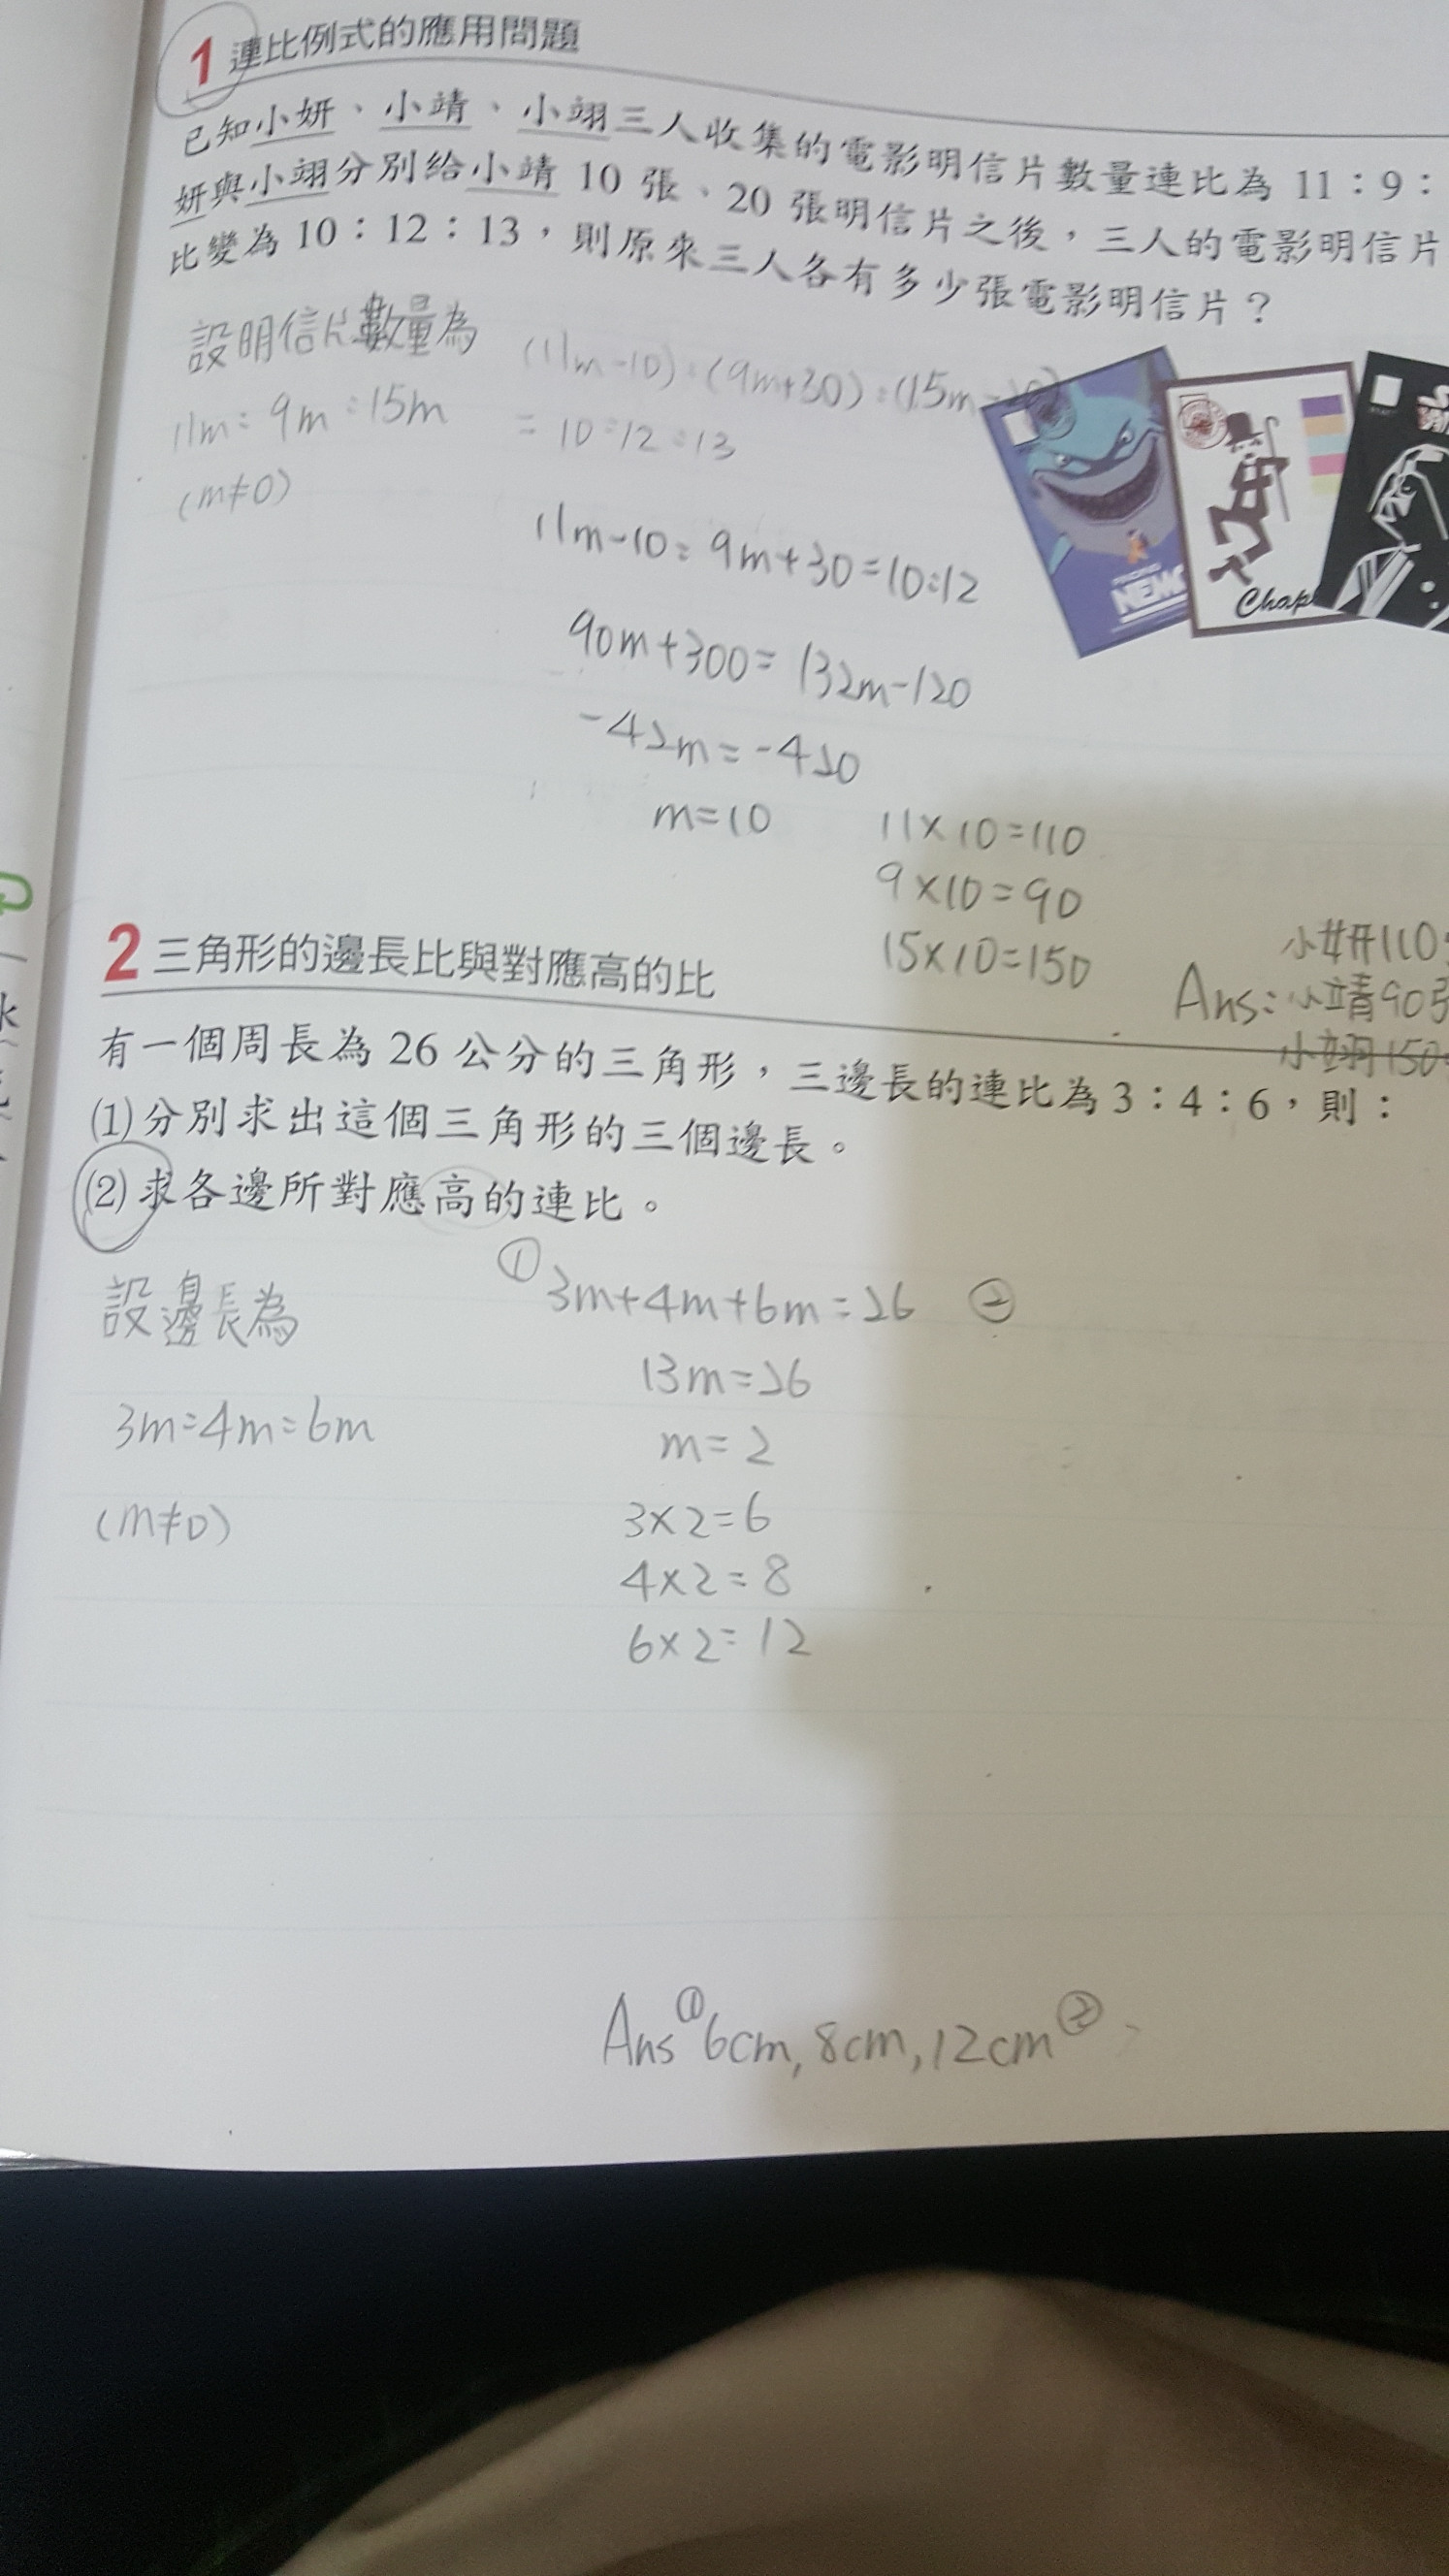 1 連比例式的應用問題
已知小妍、小靖、小翊三人收集的電影明信片數量連比為 11：9：
妍與小翊分別給小靖 10 張、20 張明信片之後，三人的電影明信片
比變為 10：12：13，則原來三人各有多少張電影明信片？
設明信片數量為
11m:9m:15m
(m≠0)
(11m-10):(9m+30):(15m-20)
=10:12:13
11m-10:9m+30=10:12
90m+300=132m-120
-42m=-420
m=10
11×10=110
9×10=90
15×10=150
小妍110
Ans:小靖90張
小翊150
NEMO
Chap
2 三角形的邊長比與對應高的比
有一個周長為 26 公分的三角形，三邊長的連比為 3：4：6，則：
(1)分別求出這個三角形的三個邊長。
(2)求各邊所對應高的連比。
設邊長為
3m:4m:6m
(m≠0)
①3m+4m+6m=26 ②
13m=26
m=2
3×2=6
4×2=8
6×2=12
Ans①6cm,8cm,12cm②